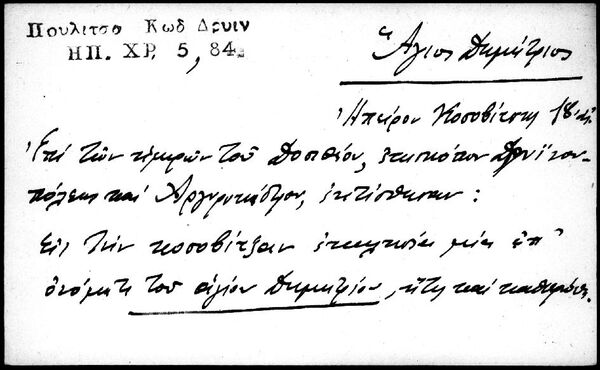 Πουλιτσα Κωδ Δρυιν
ΗΠ. ΧΡ. 5, 84
Ἅγιος Δημήτριος
Ἠπείρου Κοσοβίτσης 18
Ἐπί τῶν ἡμερῶν τοῦ Δοσιθέου, ἐπισκόπου Δρυϊνου-
πόλεως καί Ἀργυροκάστρου, ἐκτίσθησαν:
Εἰς τήν κοσοβίτζαν ἐκκλησία μία ἐπ'
ὀνόματι τοῦ ἁγίου Δημητρίου, ἥτις καί